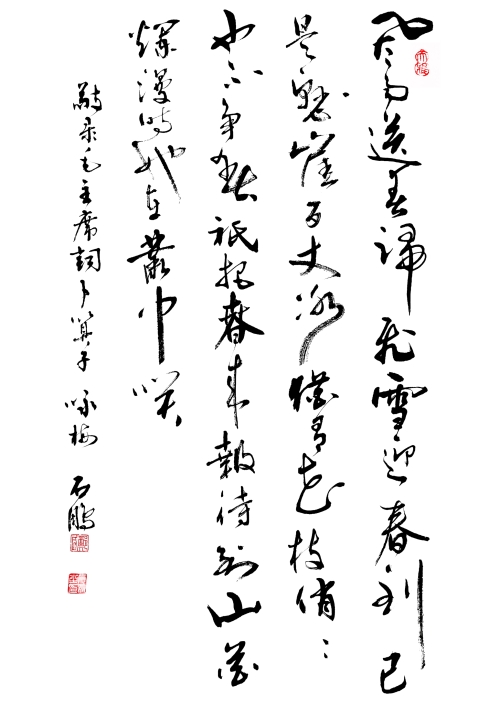 風雨送春歸飛雪迎春到已
是懸崖百丈冰猶有花枝俏〻
也不争春祇把春来報待到山花
爛漫時她在叢中咲
敬录毛主席詞卜算子咏梅 石鵬